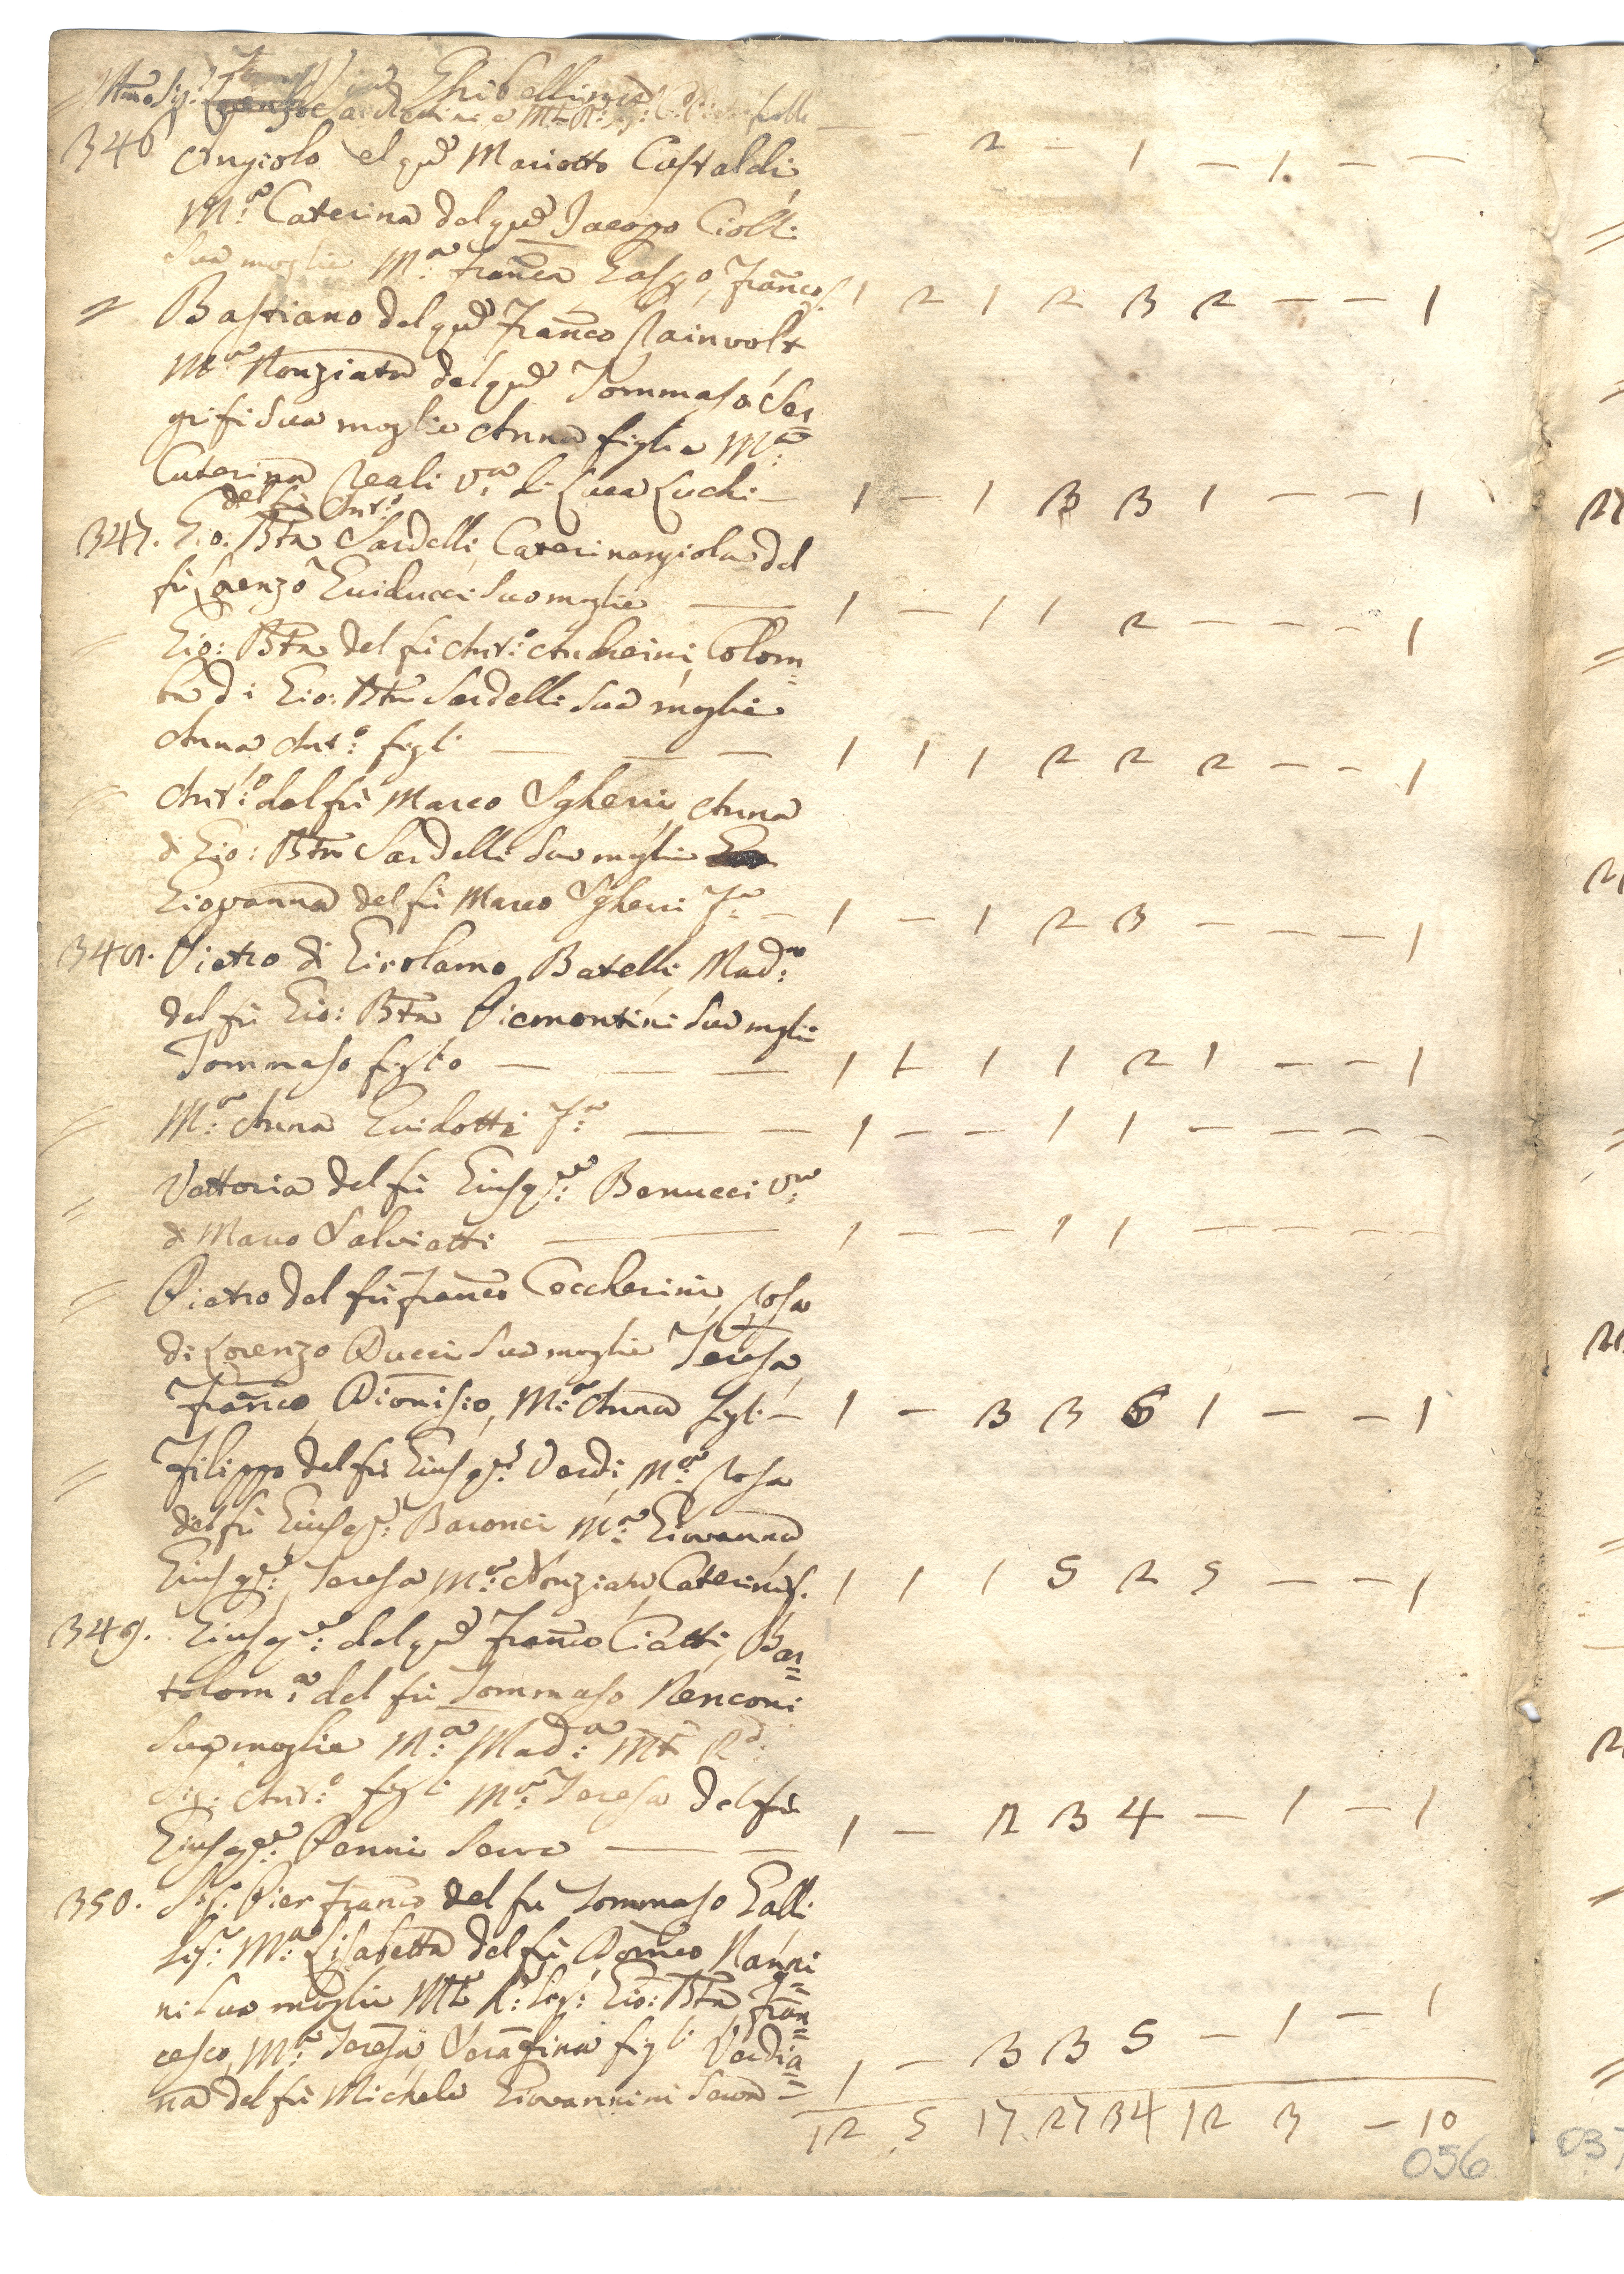 Ghibellina
— — 2 — 1 — 1. — —
346 Angiolo del qu: Mariotto Castaldi,
M:a Caterina del qu: Jacopo Ciolli
sua moglie M:a Fran:ca Gasp:o, Fran:co f. 1 2 1 2 3 2 — — 1
= Bastiano del qu: Fran:co Rainvolt
M:a Nonziata del qu: Tommaso Ser=
grifi sua moglie Anna figlia M:a
Caterina Reali V:a di Luca Luchi — 1 — 1 3 3 1 — — 1
del fù Ant:o
347. Gio: Bta Sardelli, Caterinangiola del
fù Lorenzo Guiducci sua moglie — 1 — 1 1 2 — — — 1
= Gio: Bta del fù Ant:o Andreini, Colom=
ba di Gio: Bta Sardelli sua moglie
Anna Ant:o figli — — — 1 1 1 2 2 2 — — 1
= Ant:o del fù Marco Sgherri, Anna
di Gio: Bta Sardelli sua moglie
Giovanna del fù Marco Sgherri F:a — 1 — 1 2 3 — — — 1
348. Pietro di Girolamo Batelli, Mad:a
del fù Gio: Bta Piemontini sua moglie
Tommaso figlio — — — 1 1 1 1 2 1 — — 1
= M:a Anna Guidotti F:a — — 1 — — 1 1 — — — —
= Vettoria del fù Giusep:e Benucci V:a
di Marco Salviatti — — 1 — — 1 1 — — — —
= Pietro del fù Fran:co Ceccherini, Rosa
di Lorenzo Pucci sua moglie Teresa,
Fran:co, Dionisio, M:a Anna figli — 1 — 3 3 6 1 — — 1
= Filippo del fù Giusep:e Verdi, M:a Rosa
del fù Giusep:e Baronci M:a Giovanna
Giusep:e, Teresa, M:a Nonziata, Caterina f. 1 1 1 5 2 5 — — 1
349. Giusep:e del qu: Fran:co Ciatti, Bar=
tolom:a del fù Tommaso Renconi
sua moglie M:a Mad:a Mto R:do
Sig: Ant:o figli M:a Teresa del fù
Giusep:e Penni Serva — — 1 — 2 3 4 — 1 — 1
350. Sig: Pier Fran:co del fù Tommaso Galli
Sig:ra M:a Lisabetta del fù Dom:co Nanni=
ni sua moglie Mto R: Sig: Gio: Bta Fran=
cesco, M:a Teresa, Serafina figli Verdia=
na del fù Michele Giovannini Serva — 1 — 3 3 5 — 1 — 1
12 5 17 27 34 12 3 — 10
056
037